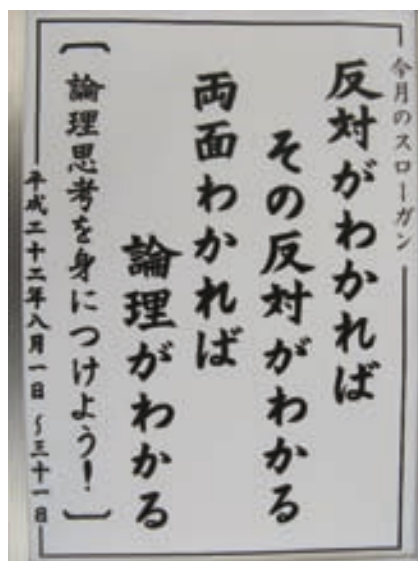 今月のスローガン
反対がわかれば
その反対がわかる
両面わかれば
論理がわかる
〔論理思考を身につけよう！〕
平成二十二年八月一日～三十一日